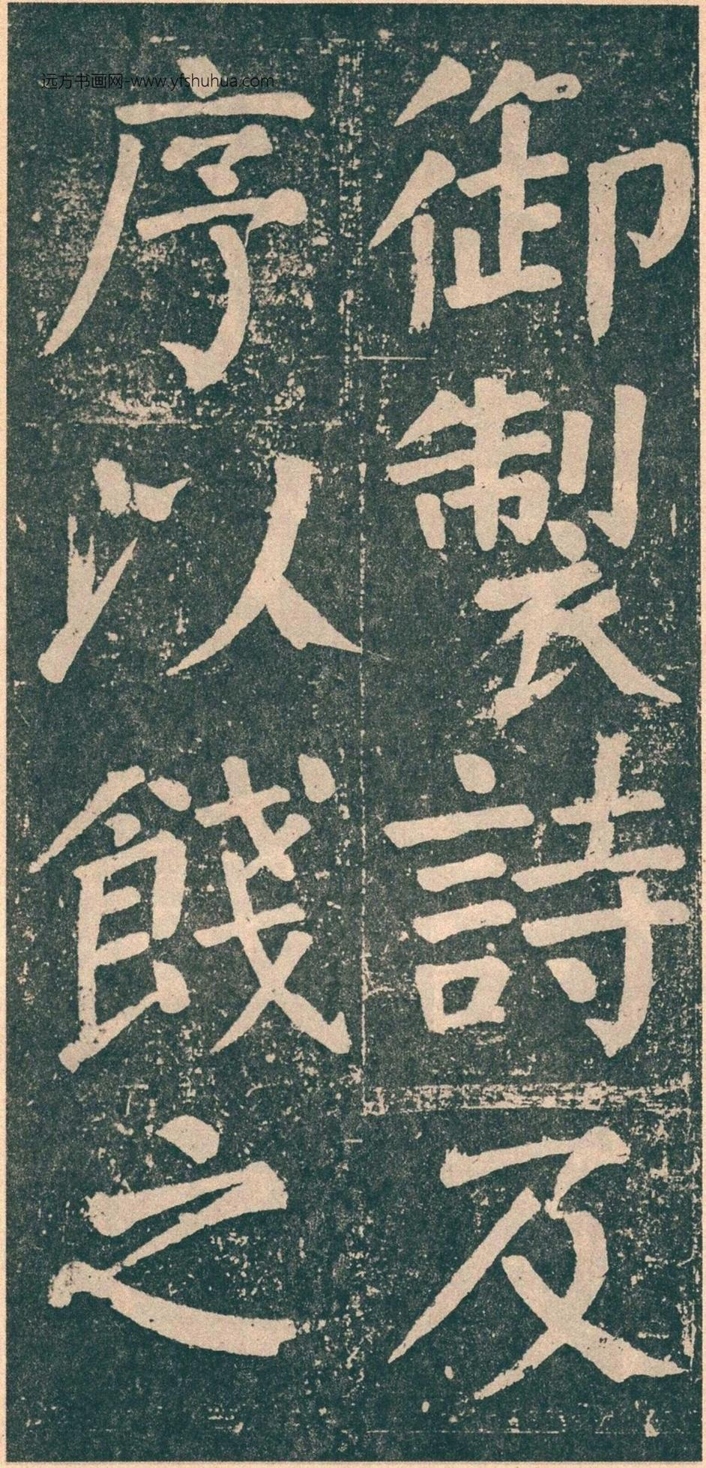 御製詩及
序以餞之
远方书画网-www.yfshuhua.com